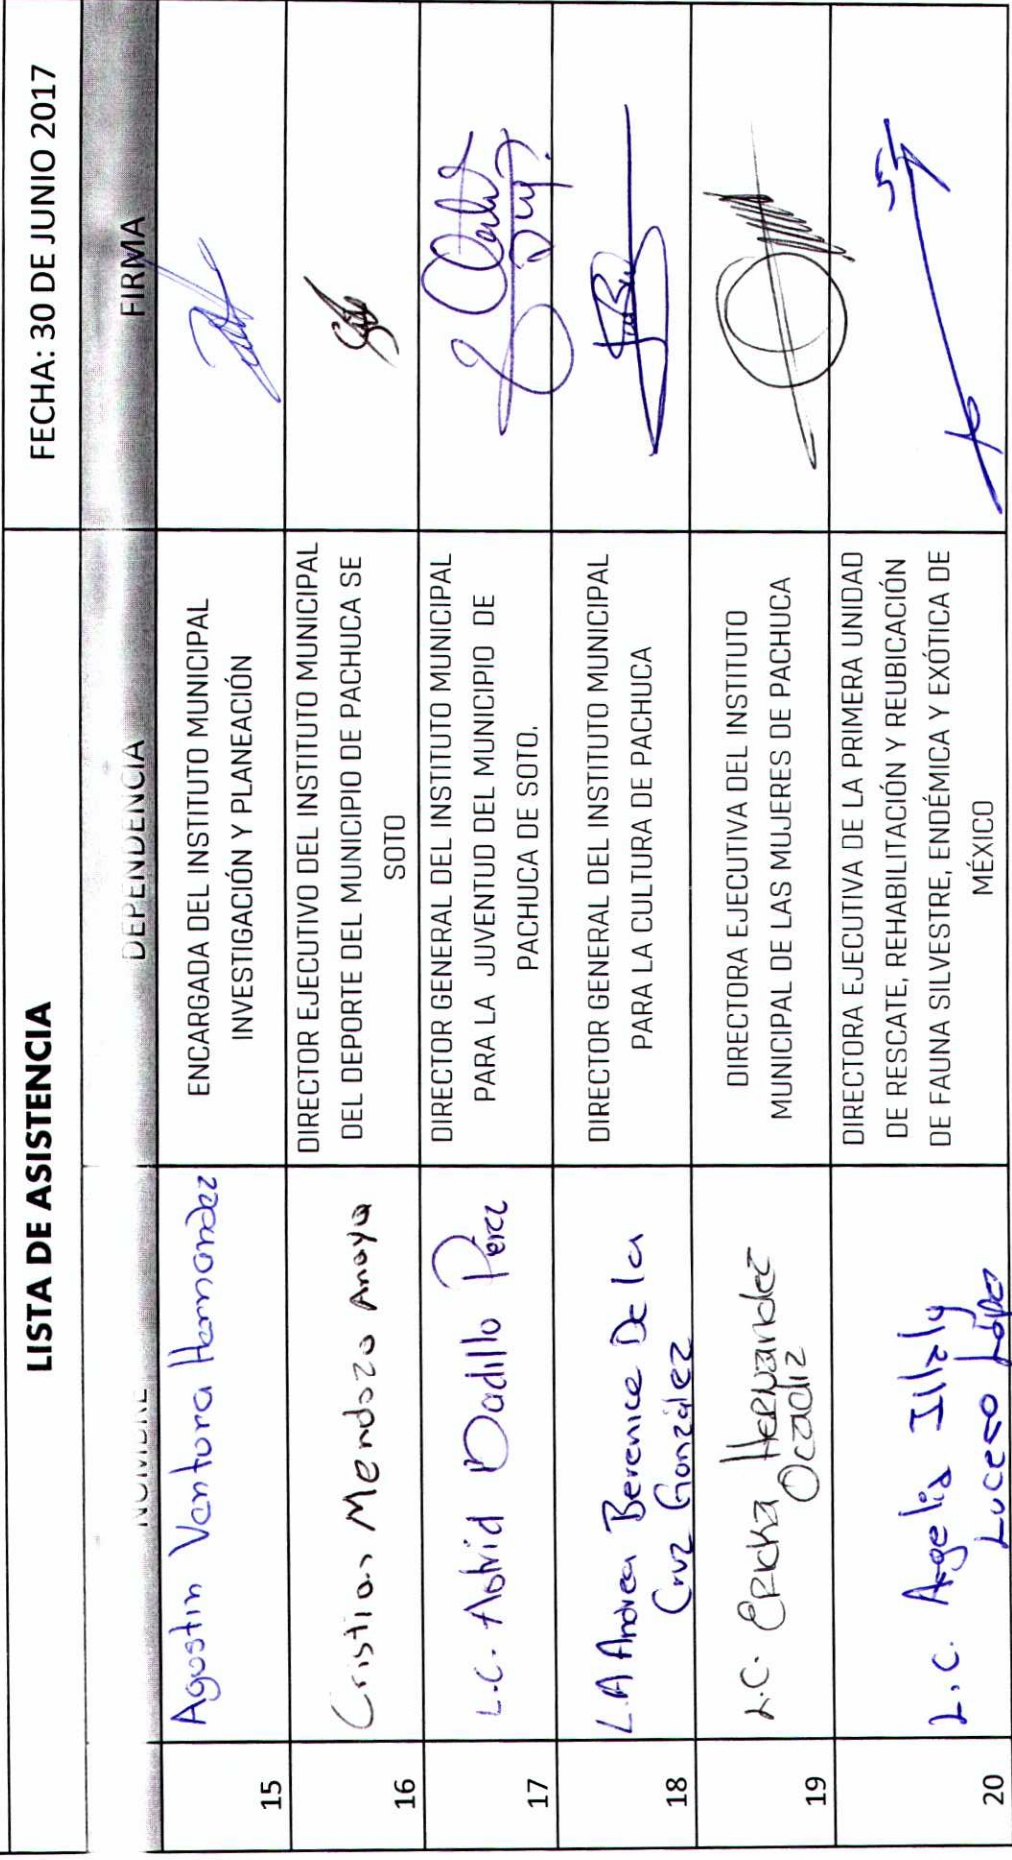 LISTA DE ASISTENCIA
FECHA: 30 DE JUNIO 2017
NOMBRE
DEPENDENCIA
FIRMA
15
Agustin Ventura Hernandez
ENCARGADA DEL INSTITUTO MUNICIPAL
INVESTIGACIÓN Y PLANEACIÓN
16
Cristian Mendoza Anaya
DIRECTOR EJECUTIVO DEL INSTITUTO MUNICIPAL
DEL DEPORTE DEL MUNICIPIO DE PACHUCA SE
SOTO
17
L.C. Astrid Badillo Perez
DIRECTOR GENERAL DEL INSTITUTO MUNICIPAL
PARA LA JUVENTUD DEL MUNICIPIO DE
PACHUCA DE SOTO.
18
L.A Andrea Berenice De la
Cruz González
DIRECTOR GENERAL DEL INSTITUTO MUNICIPAL
PARA LA CULTURA DE PACHUCA
19
L.C. Ericka Hernandez
Ocadiz
DIRECTORA EJECUTIVA DEL INSTITUTO
MUNICIPAL DE LAS MUJERES DE PACHUCA
20
L.C. Argelia Illaly
Lucero López
DIRECTORA EJECUTIVA DE LA PRIMERA UNIDAD
DE RESCATE, REHABILITACIÓN Y REUBICACIÓN
DE FAUNA SILVESTRE, ENDÉMICA Y EXÓTICA DE
MÉXICO